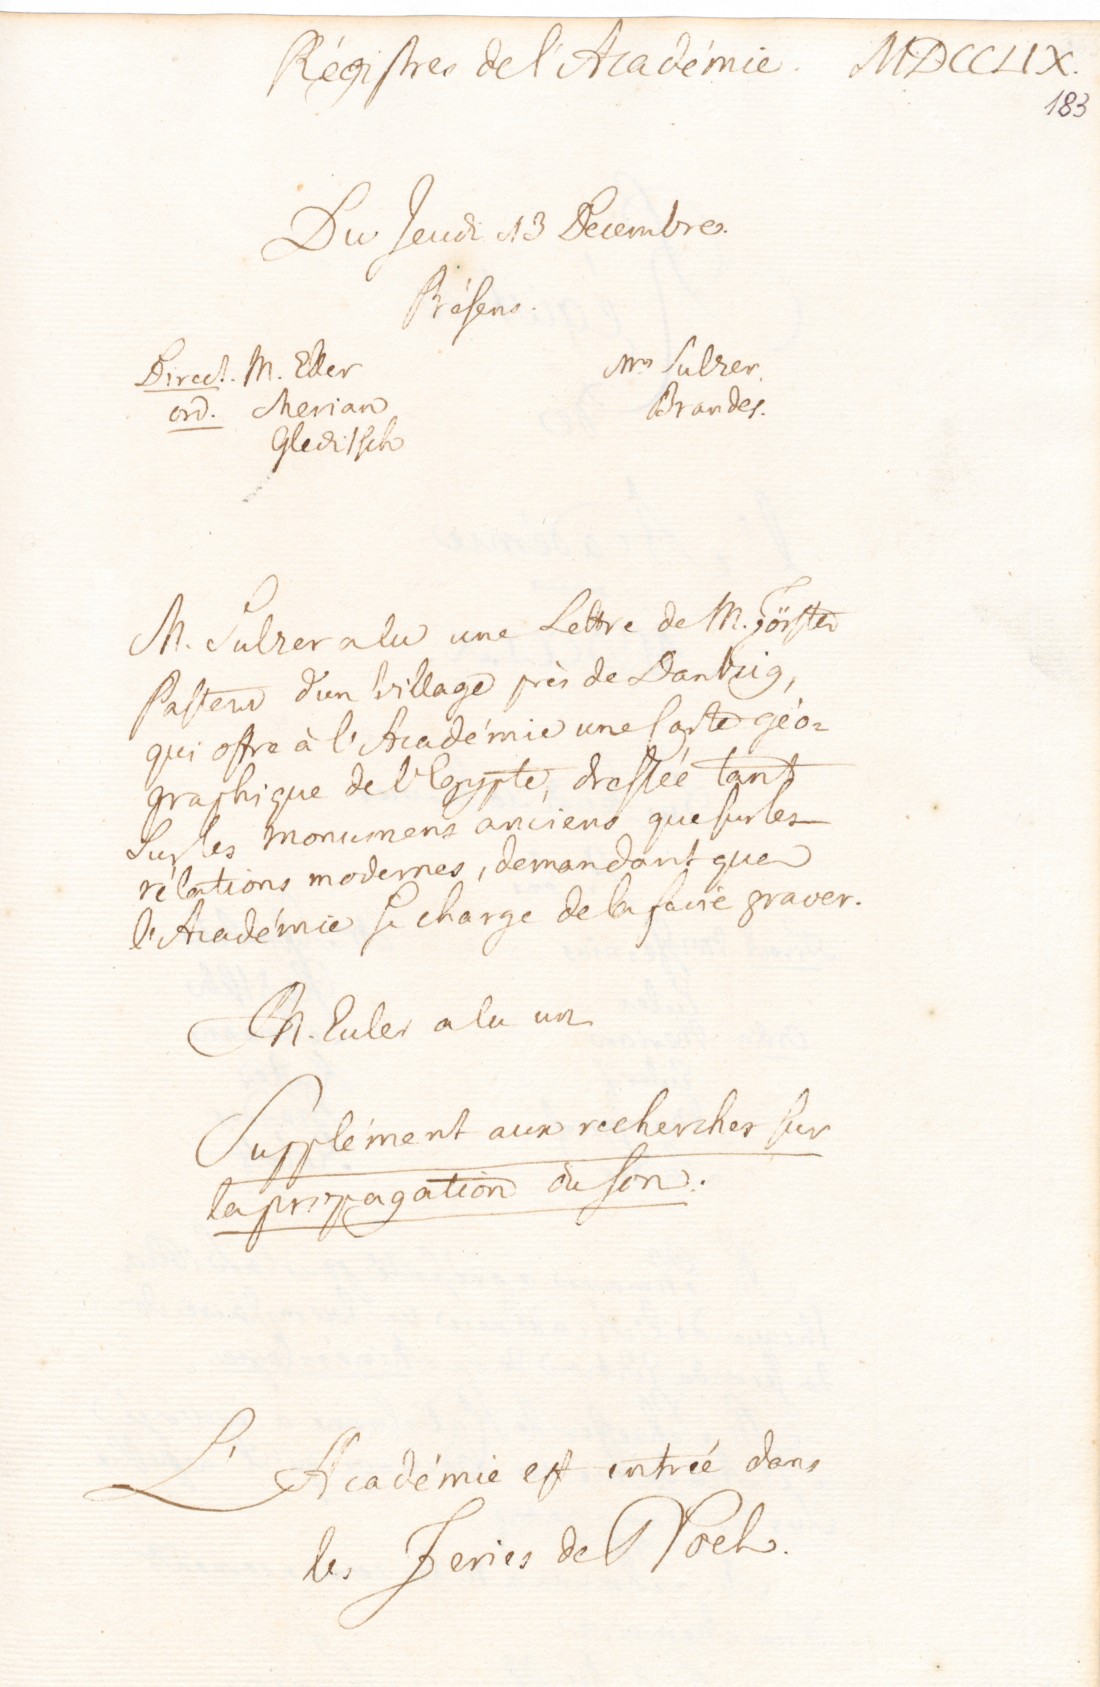 Régistres de l'Académie. MDCCLIX.
183
Du Jeudi 13 Decembre.
Présens.
Direct. M. Eller
ord. Merian
Gleditsch
Mrs Sulzer.
Brandes.
M. Sulzer a lu une Lettre de M. Förster
Pasteur d'un Village près de Dantzig,
qui offre à l'Académie une Carte géo=
graphique de l'Egypte, dressée tant
sur les monumens anciens que sur les
rélations modernes, demandant que
l'Académie se charge de la faire graver.
M. Euler a lu un
Supplément aux recherches sur
la propagation du son.
L'Académie est entrée dans
les Feries de Noel.